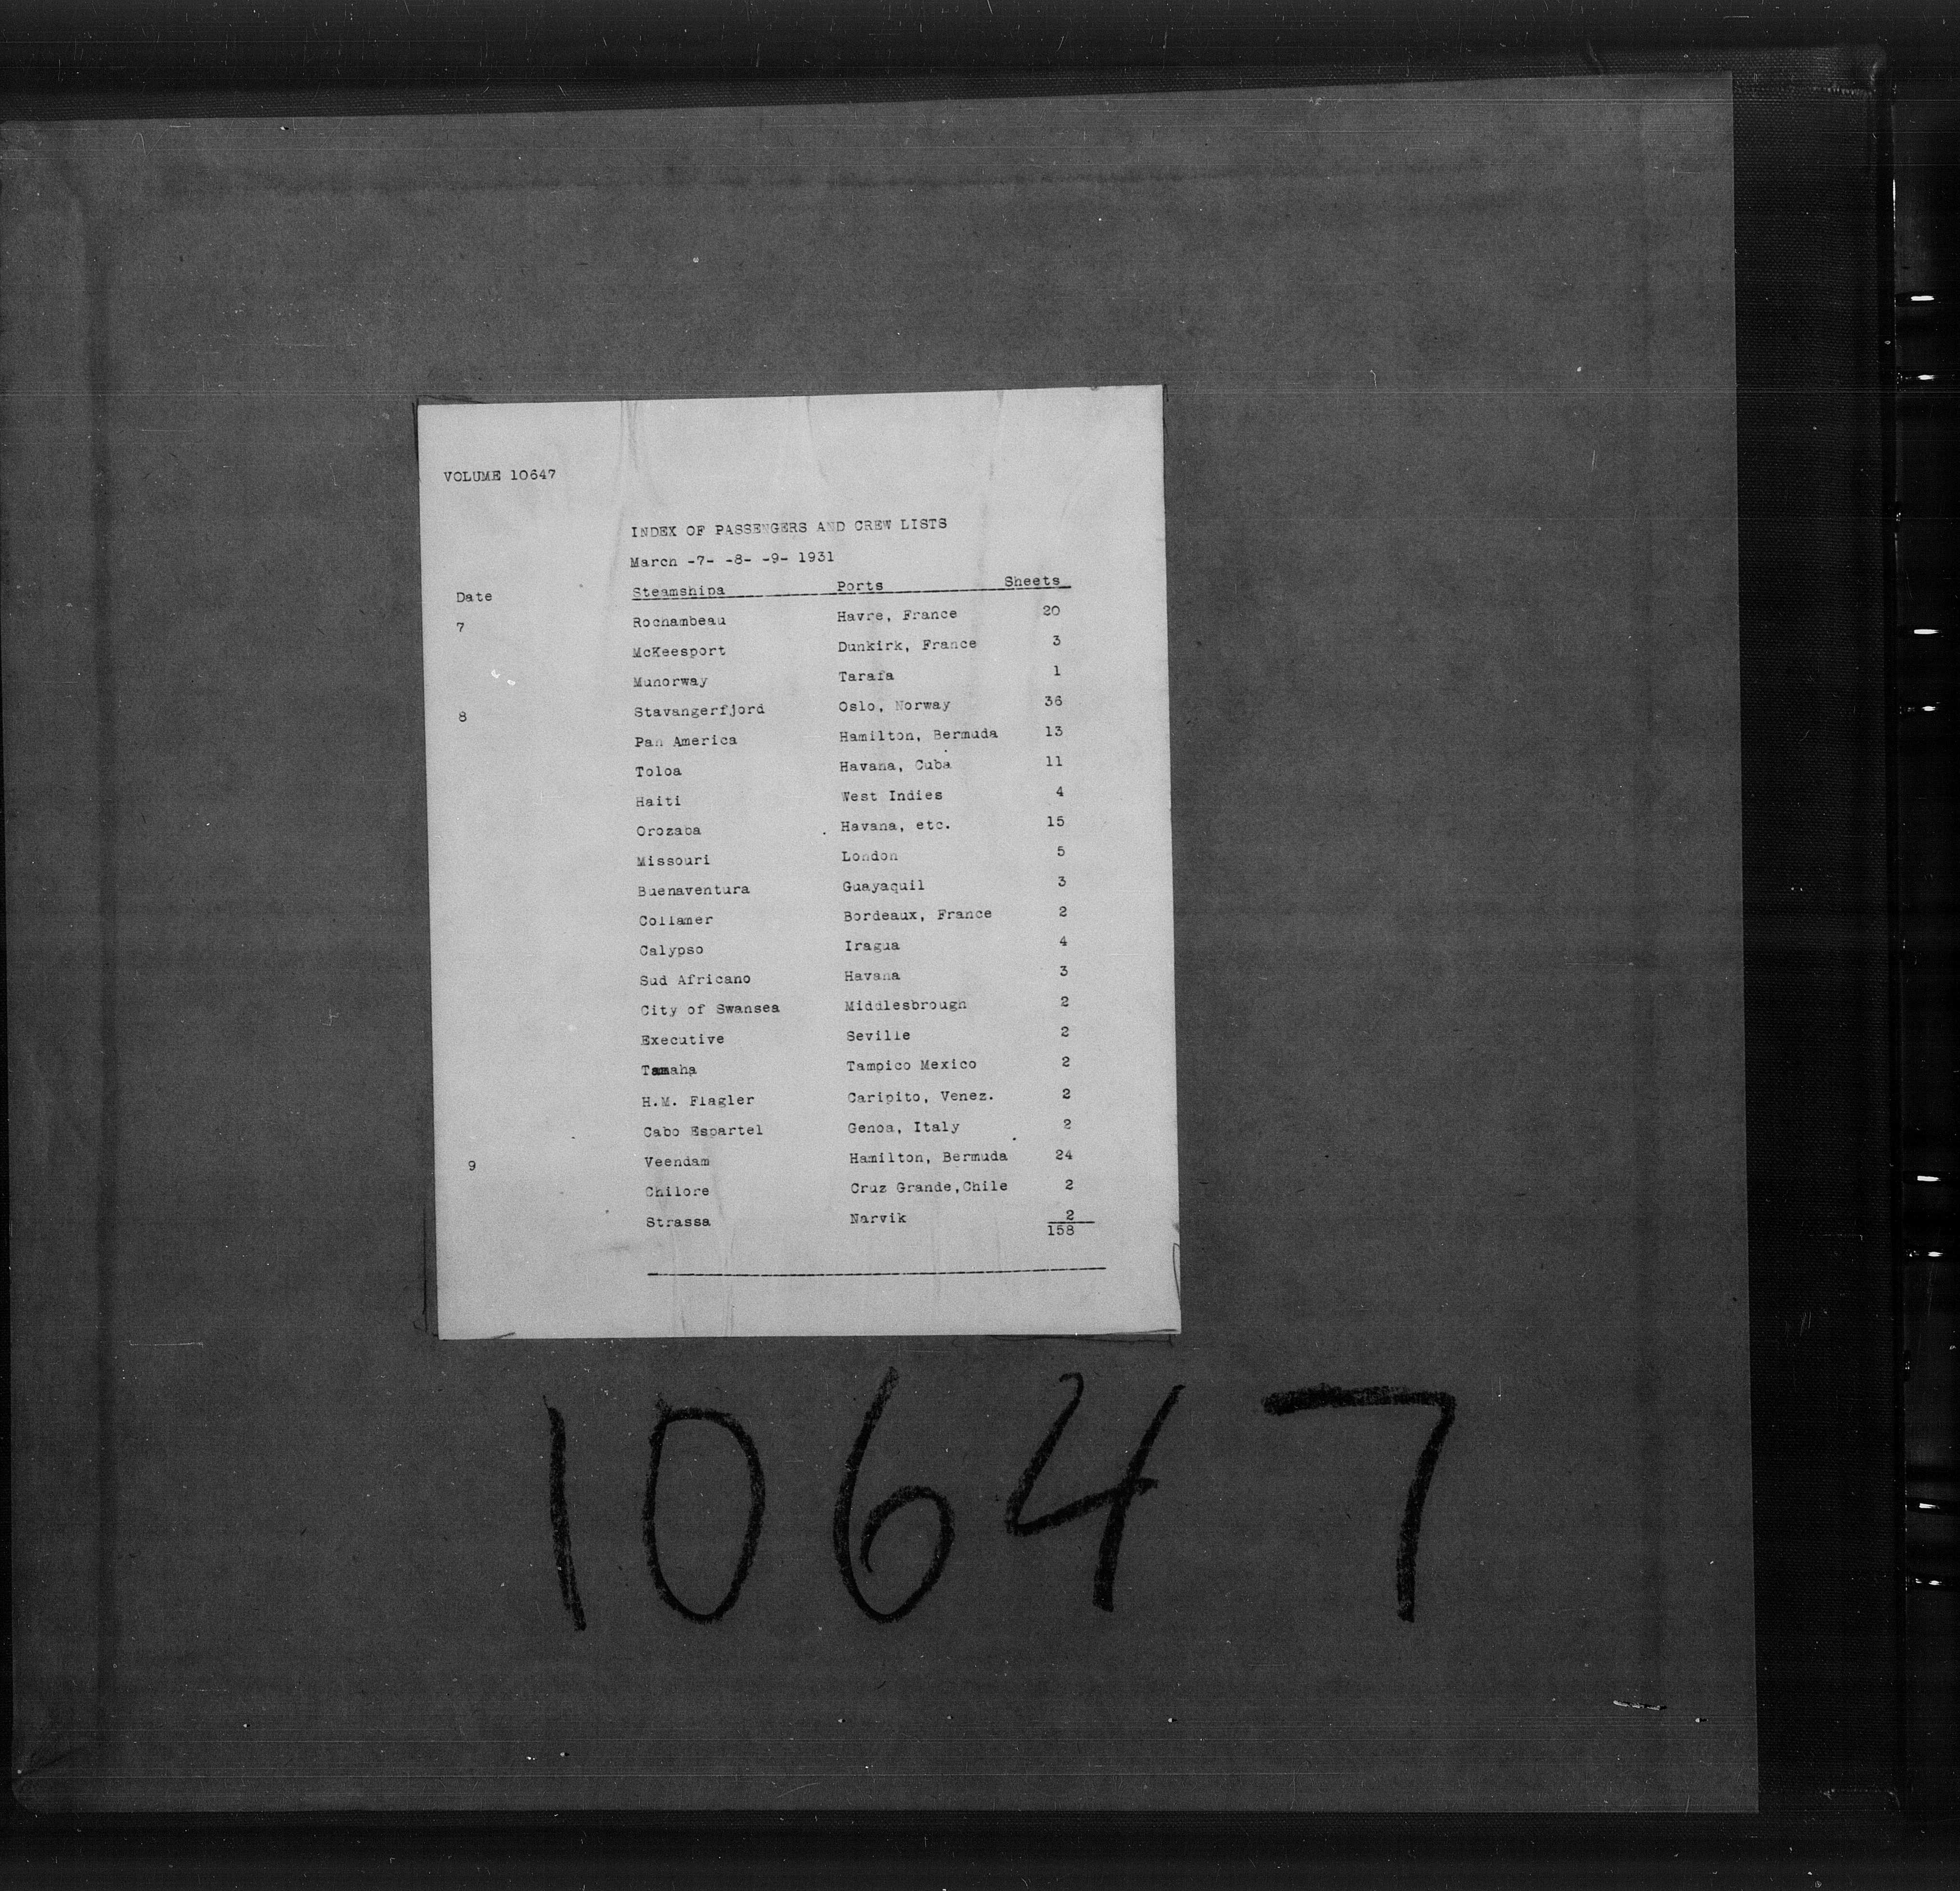 VOLUME 10647
INDEX OF PASSENGERS AND CREW LISTS
March -7- -8- -9- 1931
Date Steamshipa Ports Sheets
7 Rochambeau Havre, France 20
McKeesport Dunkirk, France 3
Munorway Tarafa 1
8 Stavangerfjord Oslo, Norway 36
Pan America Hamilton, Bermuda 13
Toloa Havana, Cuba 11
Haiti West Indies 4
Orozaba Havana, etc. 15
Missouri London 5
Buenaventura Guayaquil 3
Collamer Bordeaux, France 2
Calypso Iragua 4
Sud Africano Havana 3
City of Swansea Middlesbrough 2
Executive Seville 2
Tamaha Tampico Mexico 2
H.M. Flagler Caripito, Venez. 2
Cabo Espartel Genoa, Italy 2
9 Veendam Hamilton, Bermuda 24
Chilore Cruz Grande,Chile 2
Strassa Narvik 2
158
10647